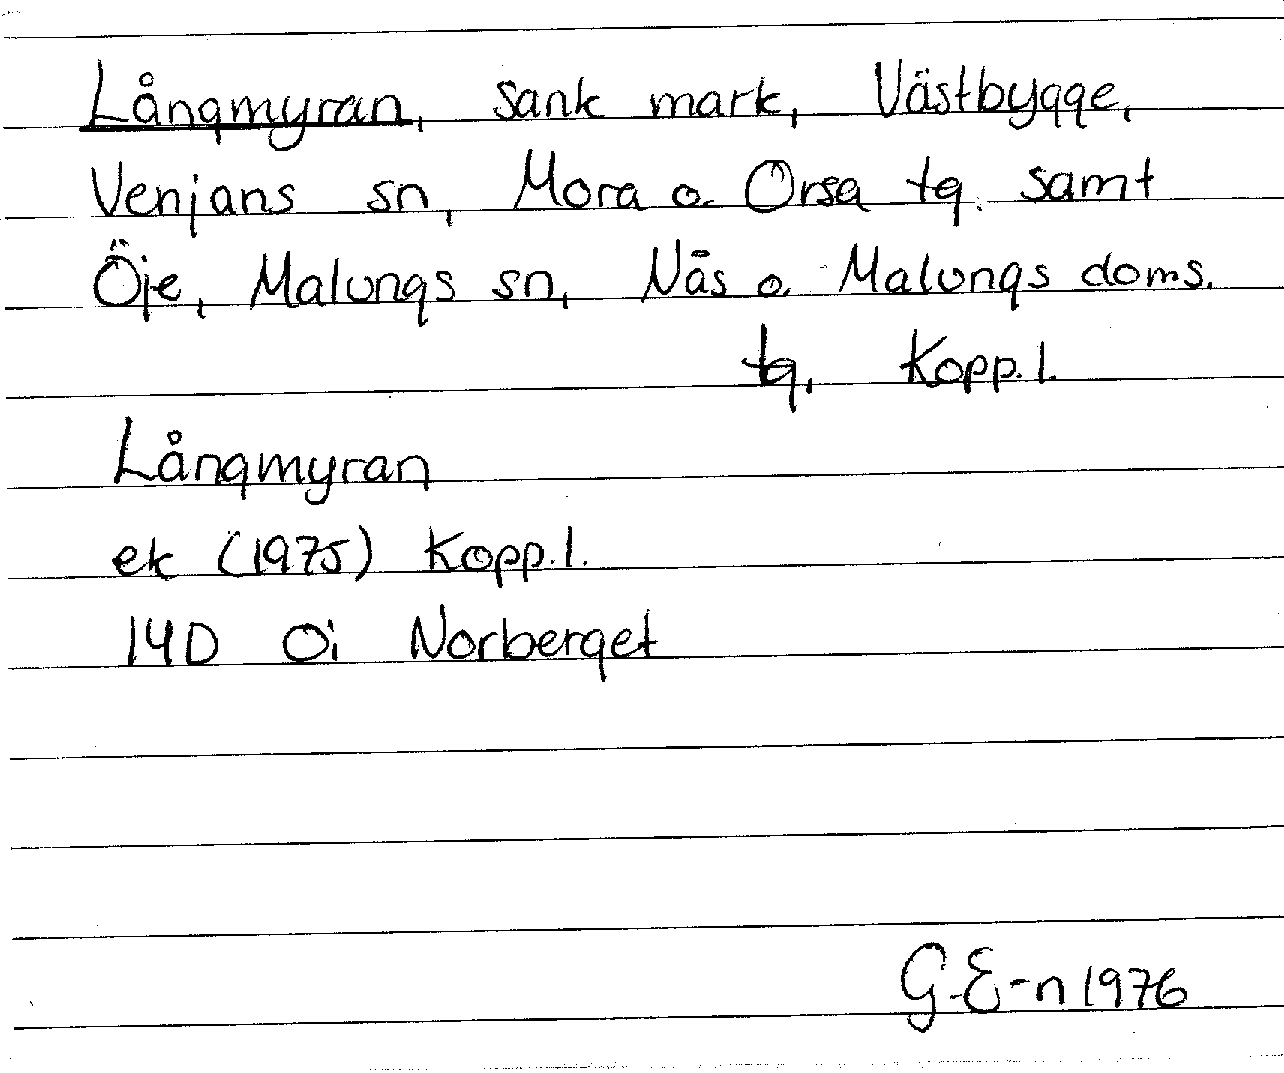 Långmyran, sank mark, Västbygge,
Venjans sn, Mora o Orsa tg. samt
Öje, Malungs sn, Näs o Malungs doms.
tg, Kopp.l.
Långmyran
ek (1975) Kopp.l.
14D 0i Norberget
G.E-n 1976